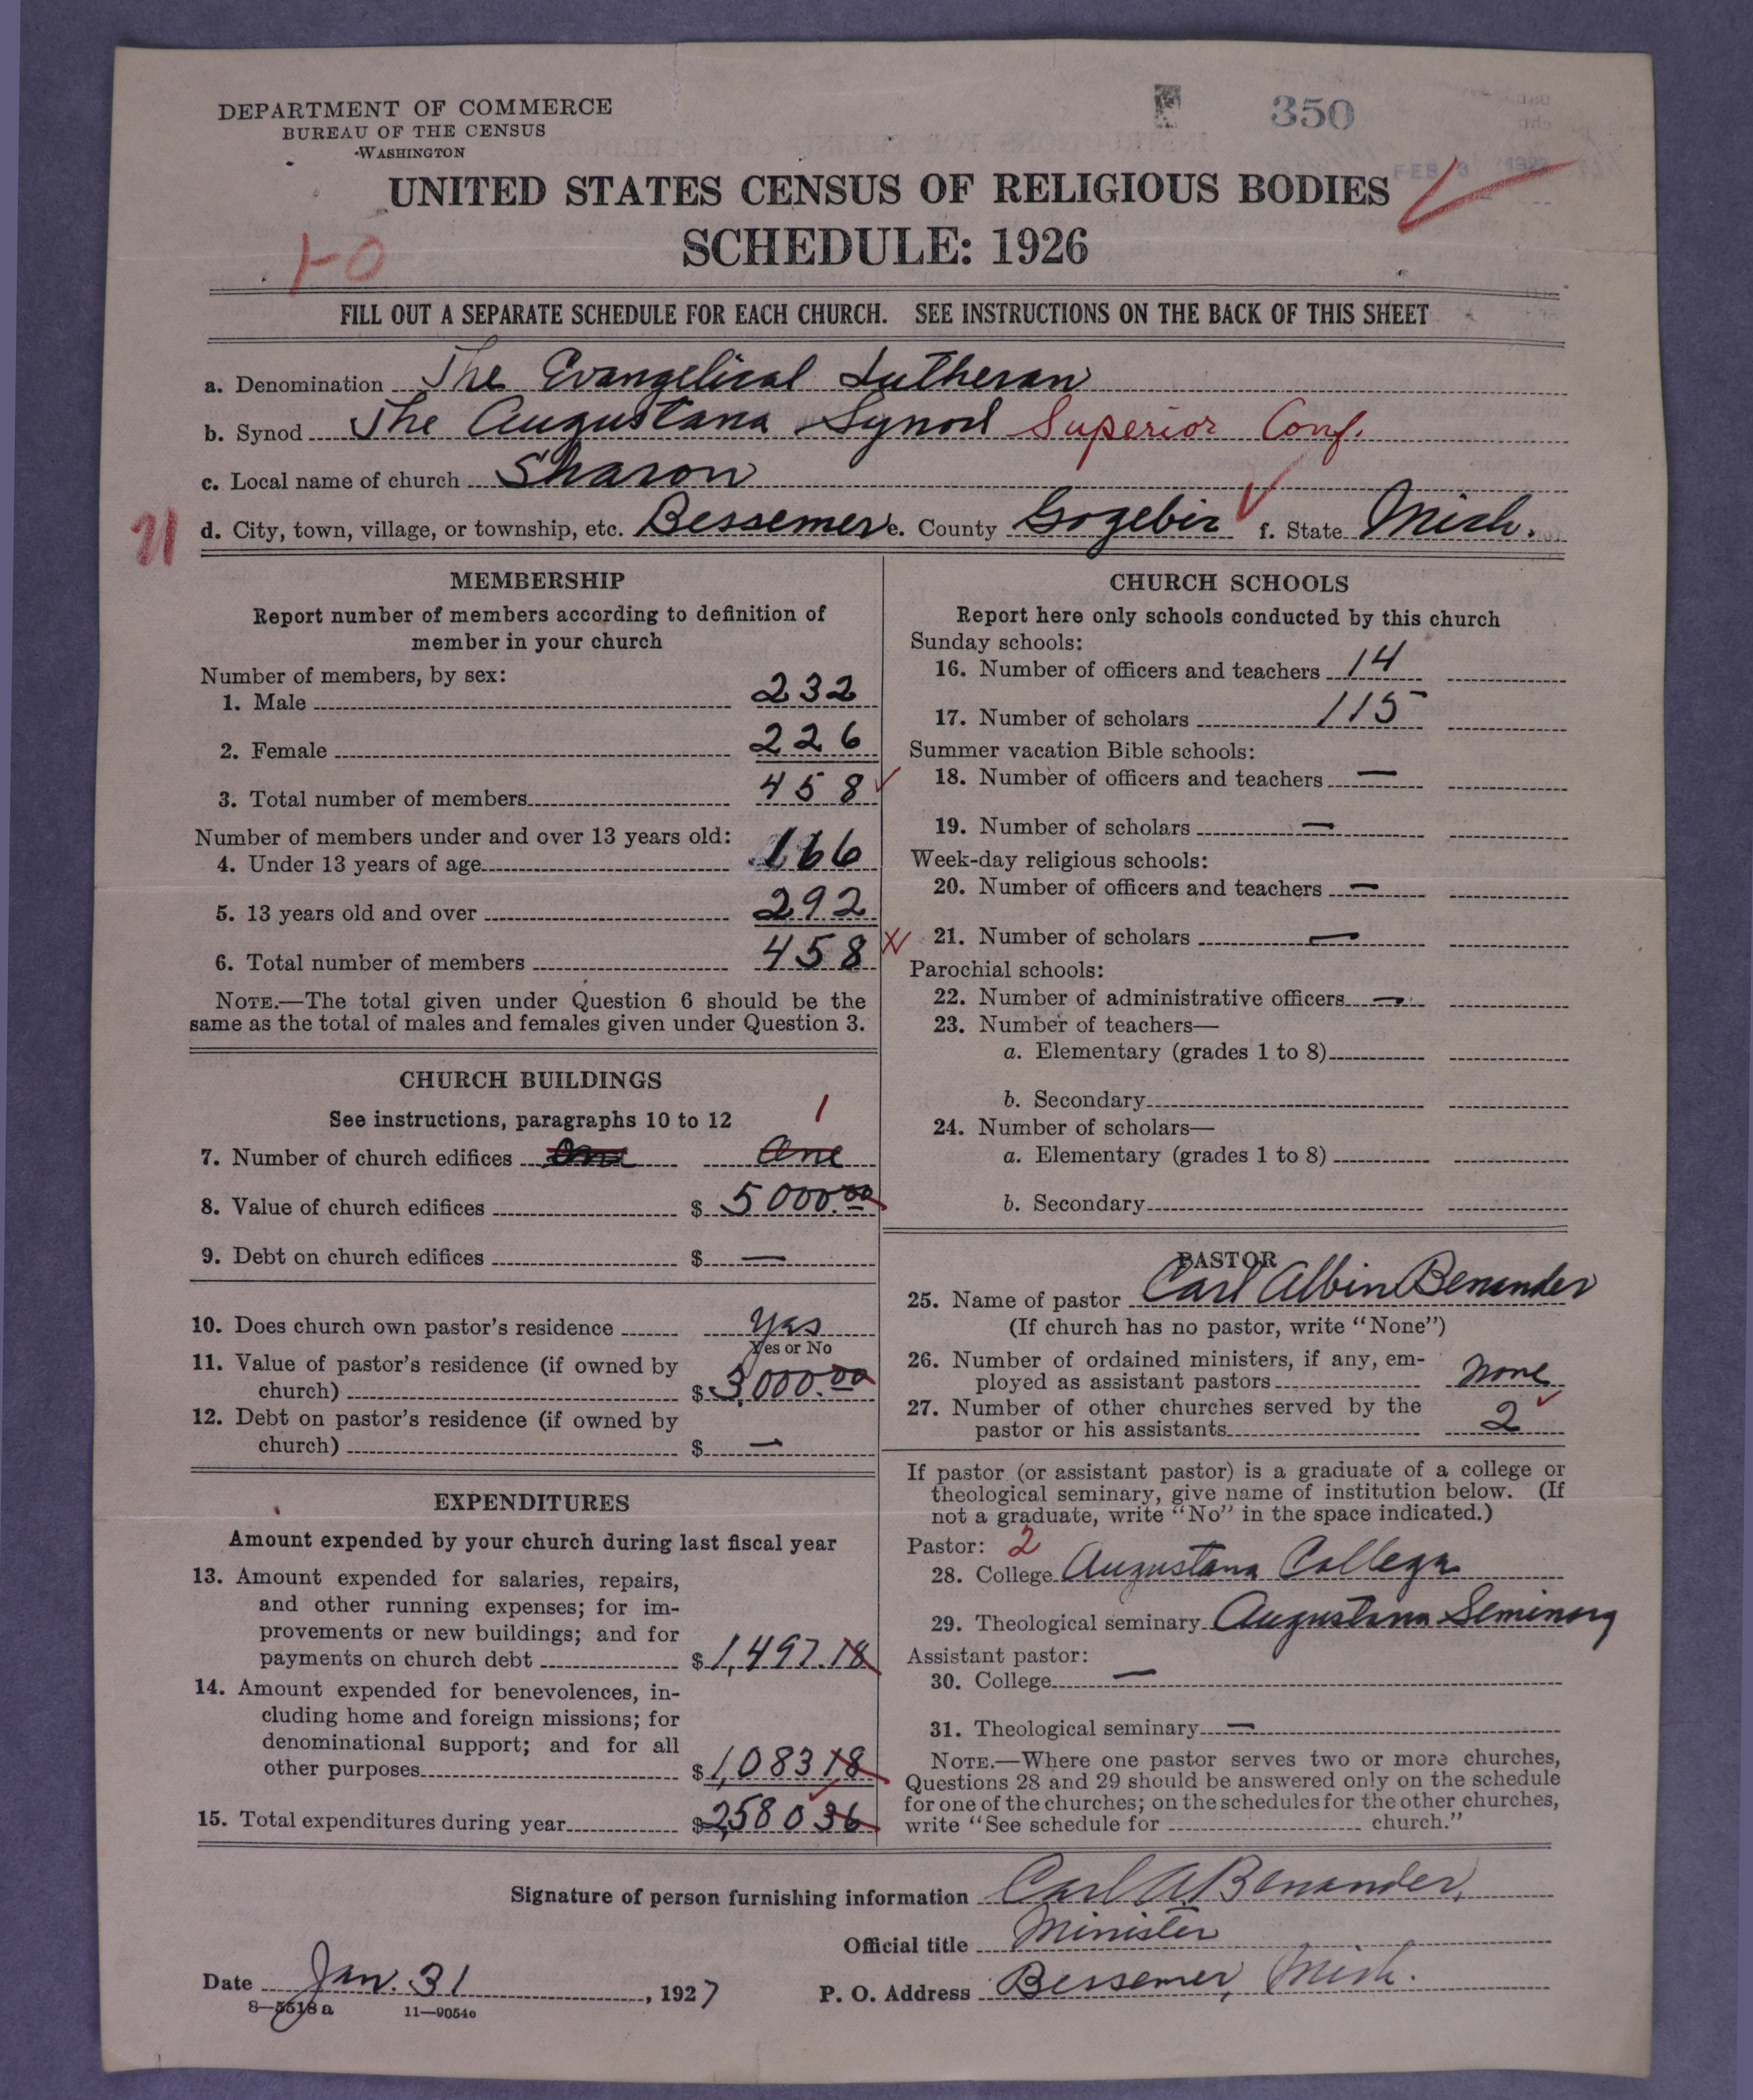 DEPARTMENT OF COMMERCE
BUREAU OF THE CENSUS
WASHINGTON
350
FEB 3 1927
UNITED STATES CENSUS OF RELIGIOUS BODIES
SCHEDULE: 1926
FILL OUT A SEPARATE SCHEDULE FOR EACH CHURCH. SEE INSTRUCTIONS ON THE BACK OF THIS SHEET
a. Denomination The Evangelical Lutheran
b. Synod The Augustana Synod Superior Conf.
c. Local name of church Sharon
d. City, town, village, or township, etc. Bessemer e. County Gogebic f. State Mich.
MEMBERSHIP
Report number of members according to definition of
member in your church
Number of members, by sex:
1. Male 232
2. Female 226
3. Total number of members 458
Number of members under and over 13 years old:
4. Under 13 years of age 166
5. 13 years old and over 292
6. Total number of members 458
NOTE.—The total given under Question 6 should be the
same as the total of males and females given under Question 3.
CHURCH BUILDINGS
See instructions, paragraphs 10 to 12 1
7. Number of church edifices One One
8. Value of church edifices $ 5000.00
9. Debt on church edifices $ —
10. Does church own pastor's residence Yes
Yes or No
11. Value of pastor's residence (if owned by
church) $ 3,000.00
12. Debt on pastor's residence (if owned by
church) $ —
EXPENDITURES
Amount expended by your church during last fiscal year
13. Amount expended for salaries, repairs,
and other running expenses; for im-
provements or new buildings; and for
payments on church debt $ 1,497.18
14. Amount expended for benevolences, in-
cluding home and foreign missions; for
denominational support; and for all
other purposes $ 1,083 18
15. Total expenditures during year $ 2,580 36
CHURCH SCHOOLS
Report here only schools conducted by this church
Sunday schools:
16. Number of officers and teachers 14
17. Number of scholars 115
Summer vacation Bible schools:
18. Number of officers and teachers —
19. Number of scholars —
Week-day religious schools:
20. Number of officers and teachers —
21. Number of scholars —
Parochial schools:
22. Number of administrative officers —
23. Number of teachers—
a. Elementary (grades 1 to 8)
b. Secondary
24. Number of scholars—
a. Elementary (grades 1 to 8)
b. Secondary
PASTOR
25. Name of pastor Carl Albin Benander
(If church has no pastor, write "None")
26. Number of ordained ministers, if any, em-
ployed as assistant pastors none
27. Number of other churches served by the
pastor or his assistants 2
If pastor (or assistant pastor) is a graduate of a college or
theological seminary, give name of institution below. (If
not a graduate, write "No" in the space indicated.)
Pastor: 2
28. College Augustana College
29. Theological seminary Augustana Seminary
Assistant pastor:
30. College —
31. Theological seminary —
NOTE.—Where one pastor serves two or more churches,
Questions 28 and 29 should be answered only on the schedule
for one of the churches; on the schedules for the other churches,
write "See schedule for church."
Signature of person furnishing information Carl A. Benander,
Official title Minister
Date Jan. 31, 1927 P. O. Address Bessemer, Mich.
8—5518a 11—9054c